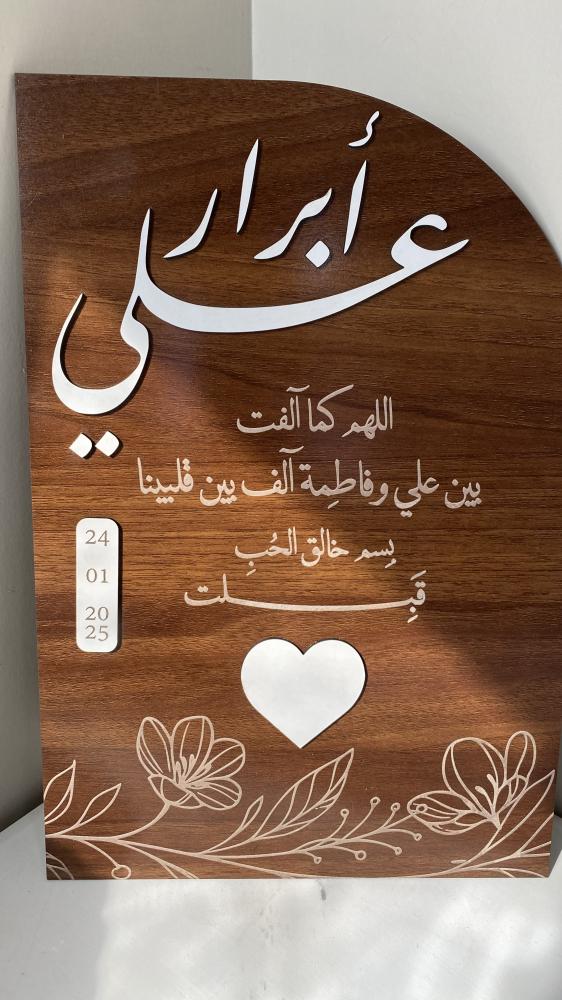 أبرار
علي
اللهم كما آلفت
بين علي وفاطِمة آلف بين قلبينا
بِسم خالق الحُبِ
قَبِلت
24
01
20
25